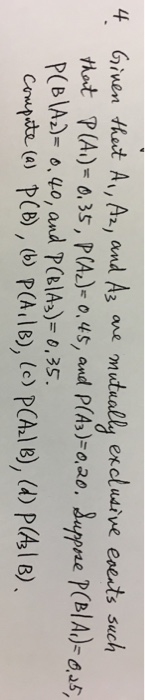 4. Given that A1, A2, and A3 are mutually exclusive events such
that P(A1) = 0.35, P(A2) = 0.45, and P(A3) = 0.20. Suppose P(B|A1) = 0.25,
P(B|A2) = 0.40, and P(B|A3) = 0.35.
Compute (a) P(B), (b) P(A1|B), (c) P(A2|B), (d) P(A3|B).